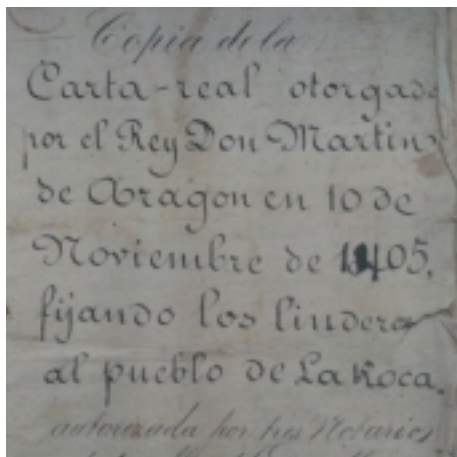 Copia de la
Carta-real otorgada
por el Rey Don Martin
de Aragon en 10 de
Noviembre de 1405,
fijando los lindero
al pueblo de La Roca,
autorizada por tres Notarios